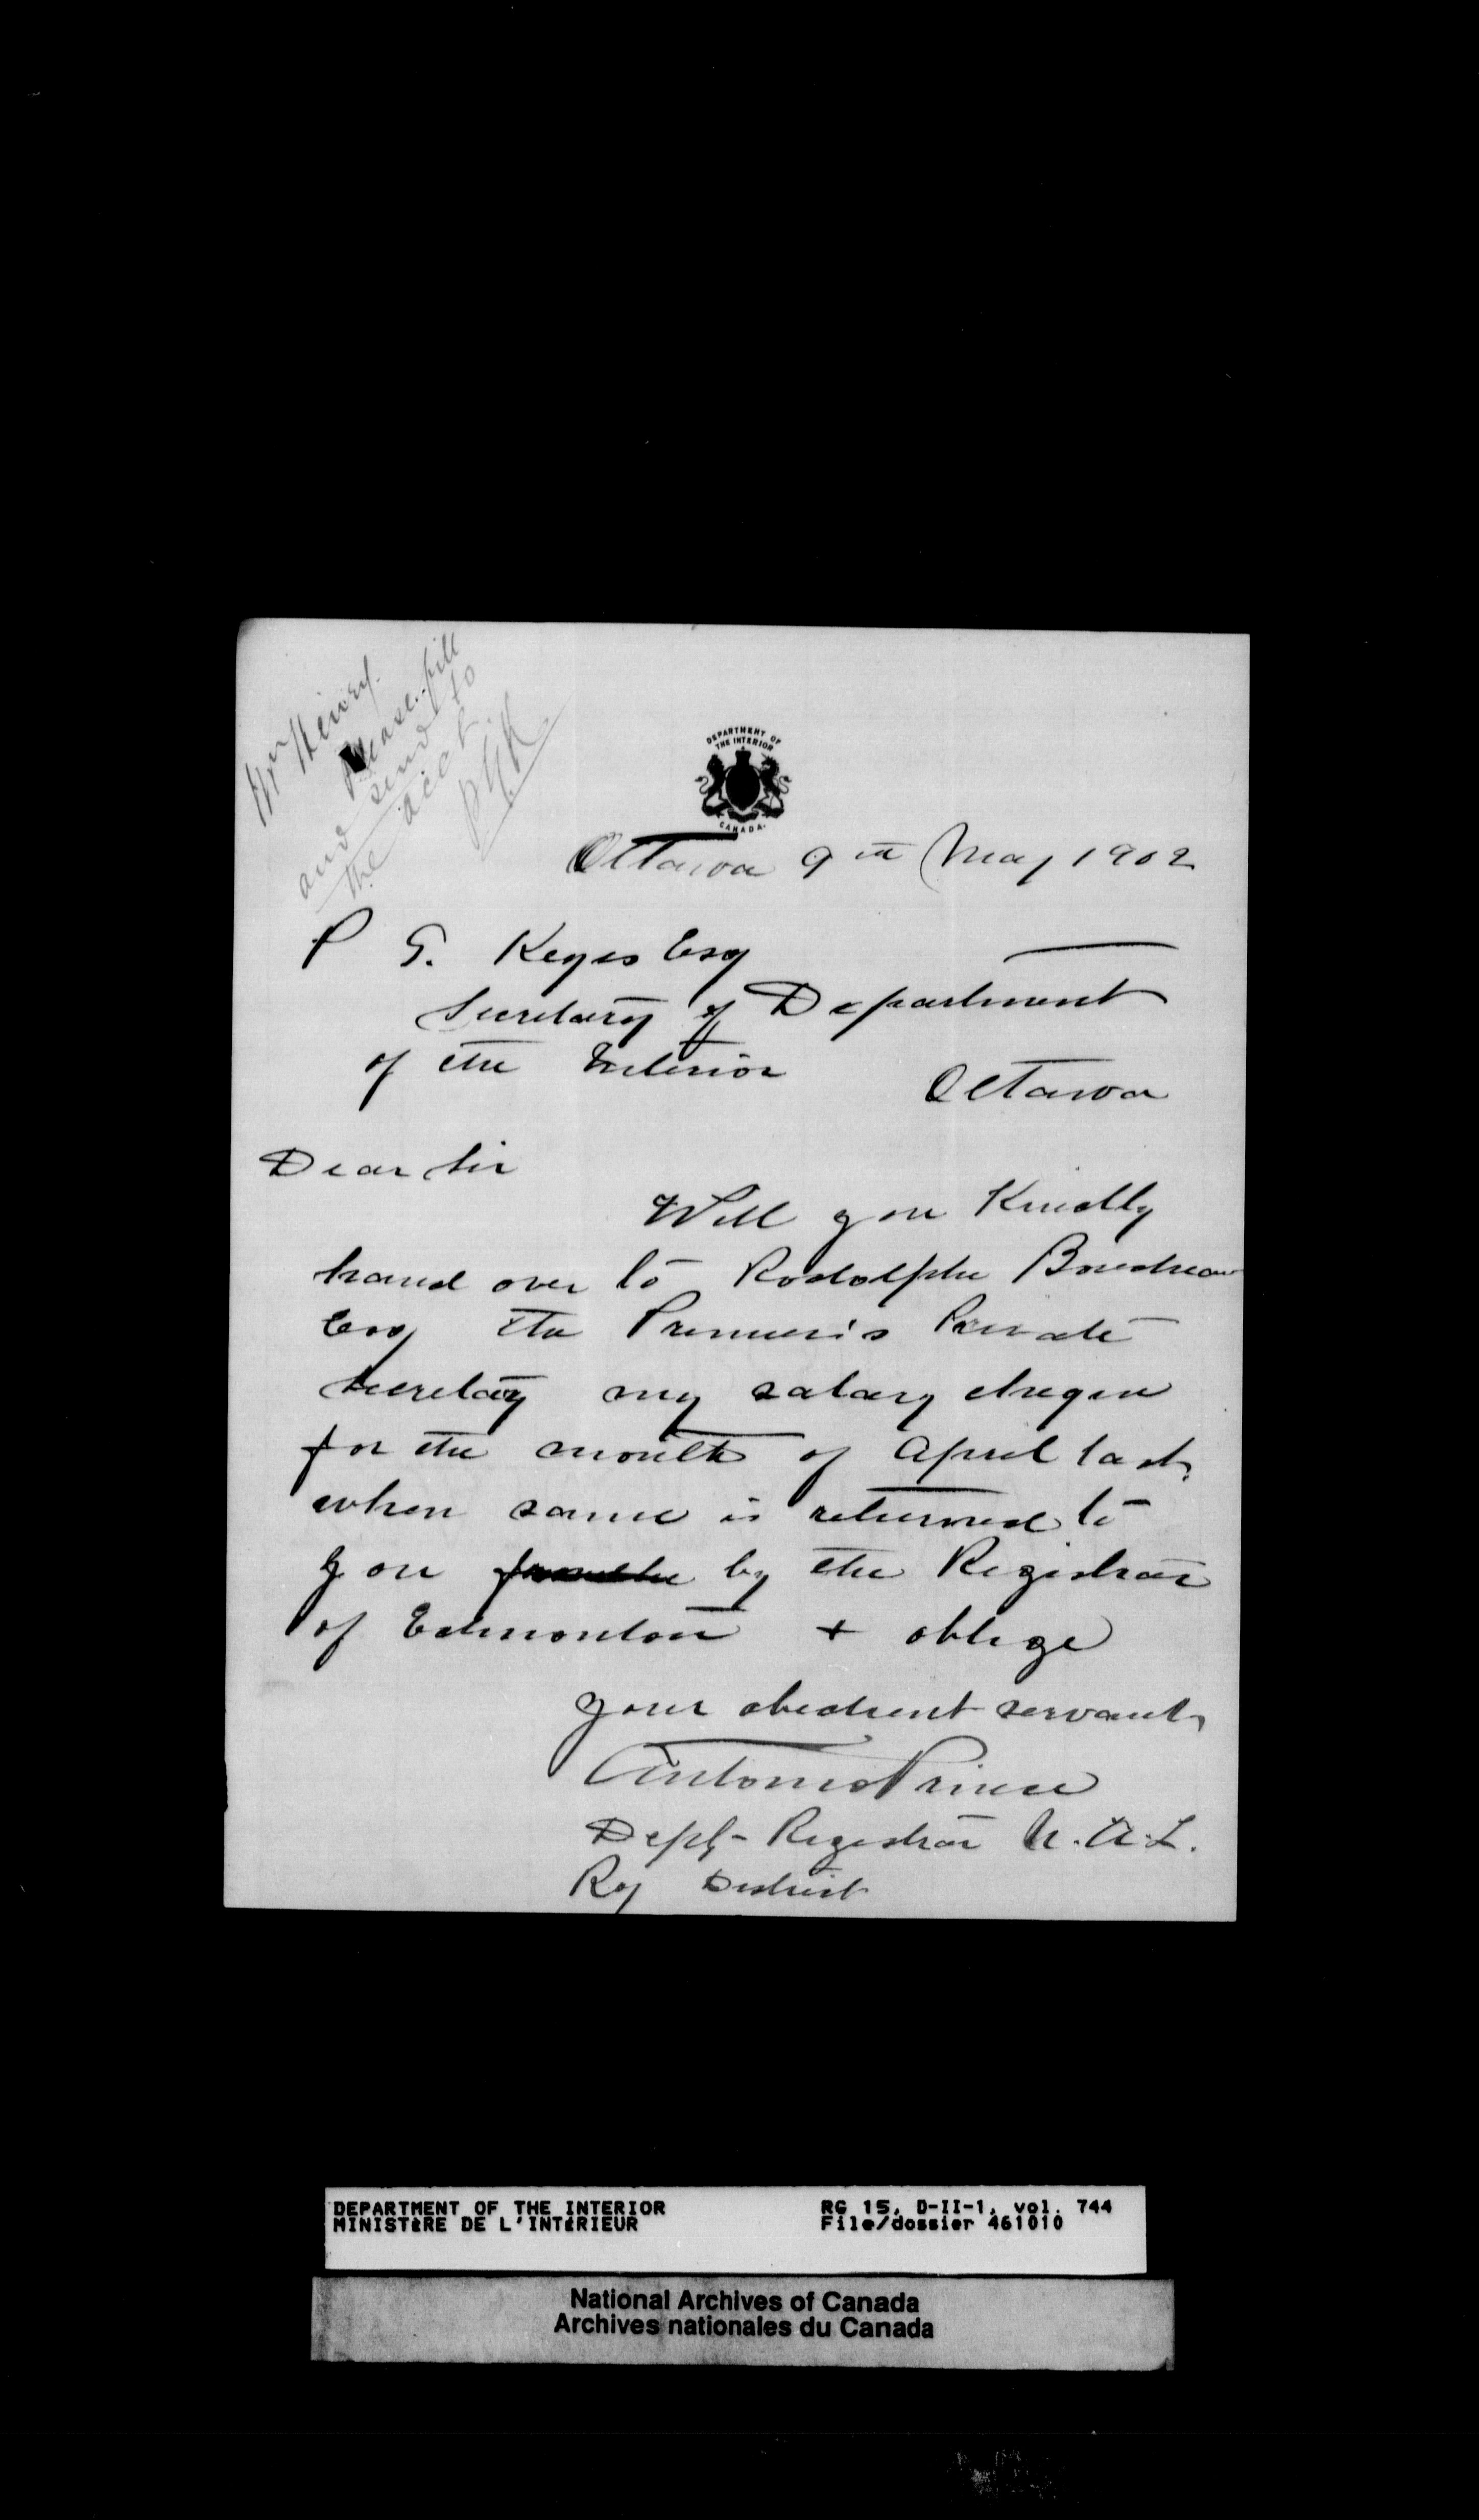 Mr Henry.
Please fill
and send to
the acct.
PGK
DEPARTMENT OF
THE INTERIOR
CANADA
Ottawa 9th May 1902
P G. Keyes Esq
Secretary of Department
of the Interior
Ottawa
Dear Sir
Will you Kindly
hand over to Rodolphe Boudreau
Esq the Premier's Private
Secretary my salary cheque
for the month of April last,
when same is returned to
you by the Registrar
of Edmonton + oblige
your obedient servant,
Antonio Prince
Depty- Registrar N. A. L.
Reg District
DEPARTMENT OF THE INTERIOR
MINISTÈRE DE L'INTÉRIEUR
RG 15, D-II-1, vol. 744
File/dossier 461010
National Archives of Canada
Archives nationales du Canada